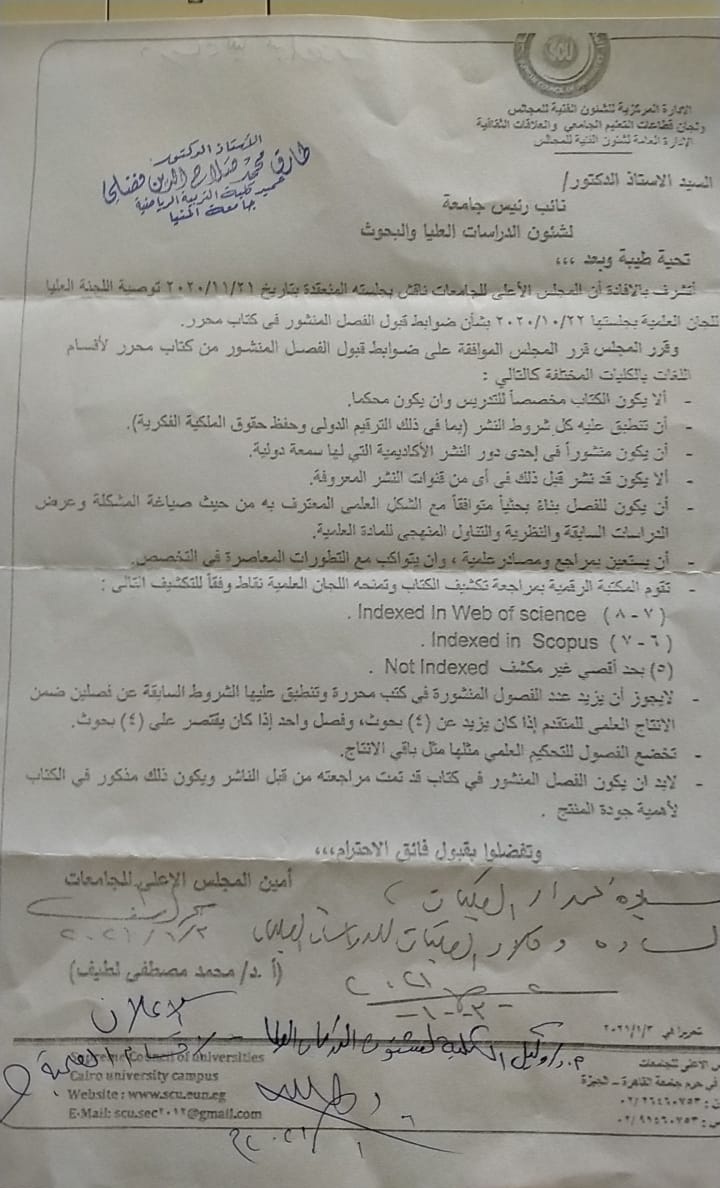 SCU
الإدارة المركزية للشئون الفنية للمجالس
ولجان قطاعات التعليم الجامعي والعلاقات الثقافية
الإدارة العامة لشئون الفنية للمجالس
الأستاذ الدكتور
طارق محمد صلاح الدين فضلي
عميد كلية التربية الرياضية
جامعة المنيا
السيد الاستاذ الدكتور/
نائب رئيس جامعة
لشئون الدراسات العليا والبحوث
تحية طيبة وبعد ،،،
أتشرف بالافادة أن المجلس الأعلى للجامعات ناقش بجلسته المنعقدة بتاريخ ٢٠٢٠/١١/٢١ توصية اللجنة العليا
للجان العلمية بجلستها ٢٠٢٠/١٠/٢٢ بشأن ضوابط قبول الفصل المنشور فى كتاب محرر.
وقرر المجلس قرر المجلس الموافقة على ضوابط قبول الفصل المنشور من كتاب محرر لأقسام
اللغات بالكليات المختلفة كالتالي :
- ألا يكون الكتاب مخصصاً للتدريس وان يكون محكما.
- أن تنطبق عليه كل شروط النشر (بما في ذلك الترقيم الدولى وحفظ حقوق الملكية الفكرية).
- أن يكون منشوراً فى إحدى دور النشر الأكاديمية التي لها سمعة دولية.
- ألا يكون قد نشر قبل ذلك في أى من قنوات النشر المعروفة.
- أن يكون للفصل بناءً بحثياً متوافقاً مع الشكل العلمى المعترف به من حيث صياغة المشكلة وعرض
الدراسات السابقة والنظرية والتناول المنهجى للمادة العلمية.
- أن يستعين بمراجع ومصادر علمية ، وان يتواكب مع التطورات المعاصرة في التخصص.
- تقوم المكتبة الرقمية بمراجعة تكشيف الكتاب وتمنحه اللجان العلمية نقاط وفقاً للتكشيف التالى :
(٧ - ٨) Indexed In Web of science .
(٦ - ٧) Indexed in Scopus .
(٥) بحد أقصي غير مكشف Not Indexed .
- لايجوز أن يزيد عدد الفصول المنشورة فى كتب محررة وتنطبق عليها الشروط السابقة عن فصلين ضمن
الانتاج العلمى للمتقدم إذا كان يزيد عن (٤) بحوث، وفصل واحد إذا كان يقتصر على (٤) بحوث.
- تخضع الفصول للتحكيم العلمي مثلها مثل باقي الانتاج.
- لابد ان يكون الفصل المنشور في كتاب قد تمت مراجعته من قبل الناشر ويكون ذلك مذكور في الكتاب
لأهمية جودة المنتج .
وتفضلوا بقبول فائق الاحترام،،،
أمين المجلس الاعلى للجامعات
٢٠٢١/١/٣
(أ.د/ محمد مصطفى لطيف)
السادة عمداء الكليات
السادة وكلاء الكليات للدراسات العليا
تحريرا في ٢٠٢١/١/٣
س الاعلى للجامعات
في حرم جامعة القاهرة - الجيزة
Supreme Council of universities
Cairo university campus
Website : www.scu.eun.eg
E-Mail: scu.sec٢٠١٢@gmail.com